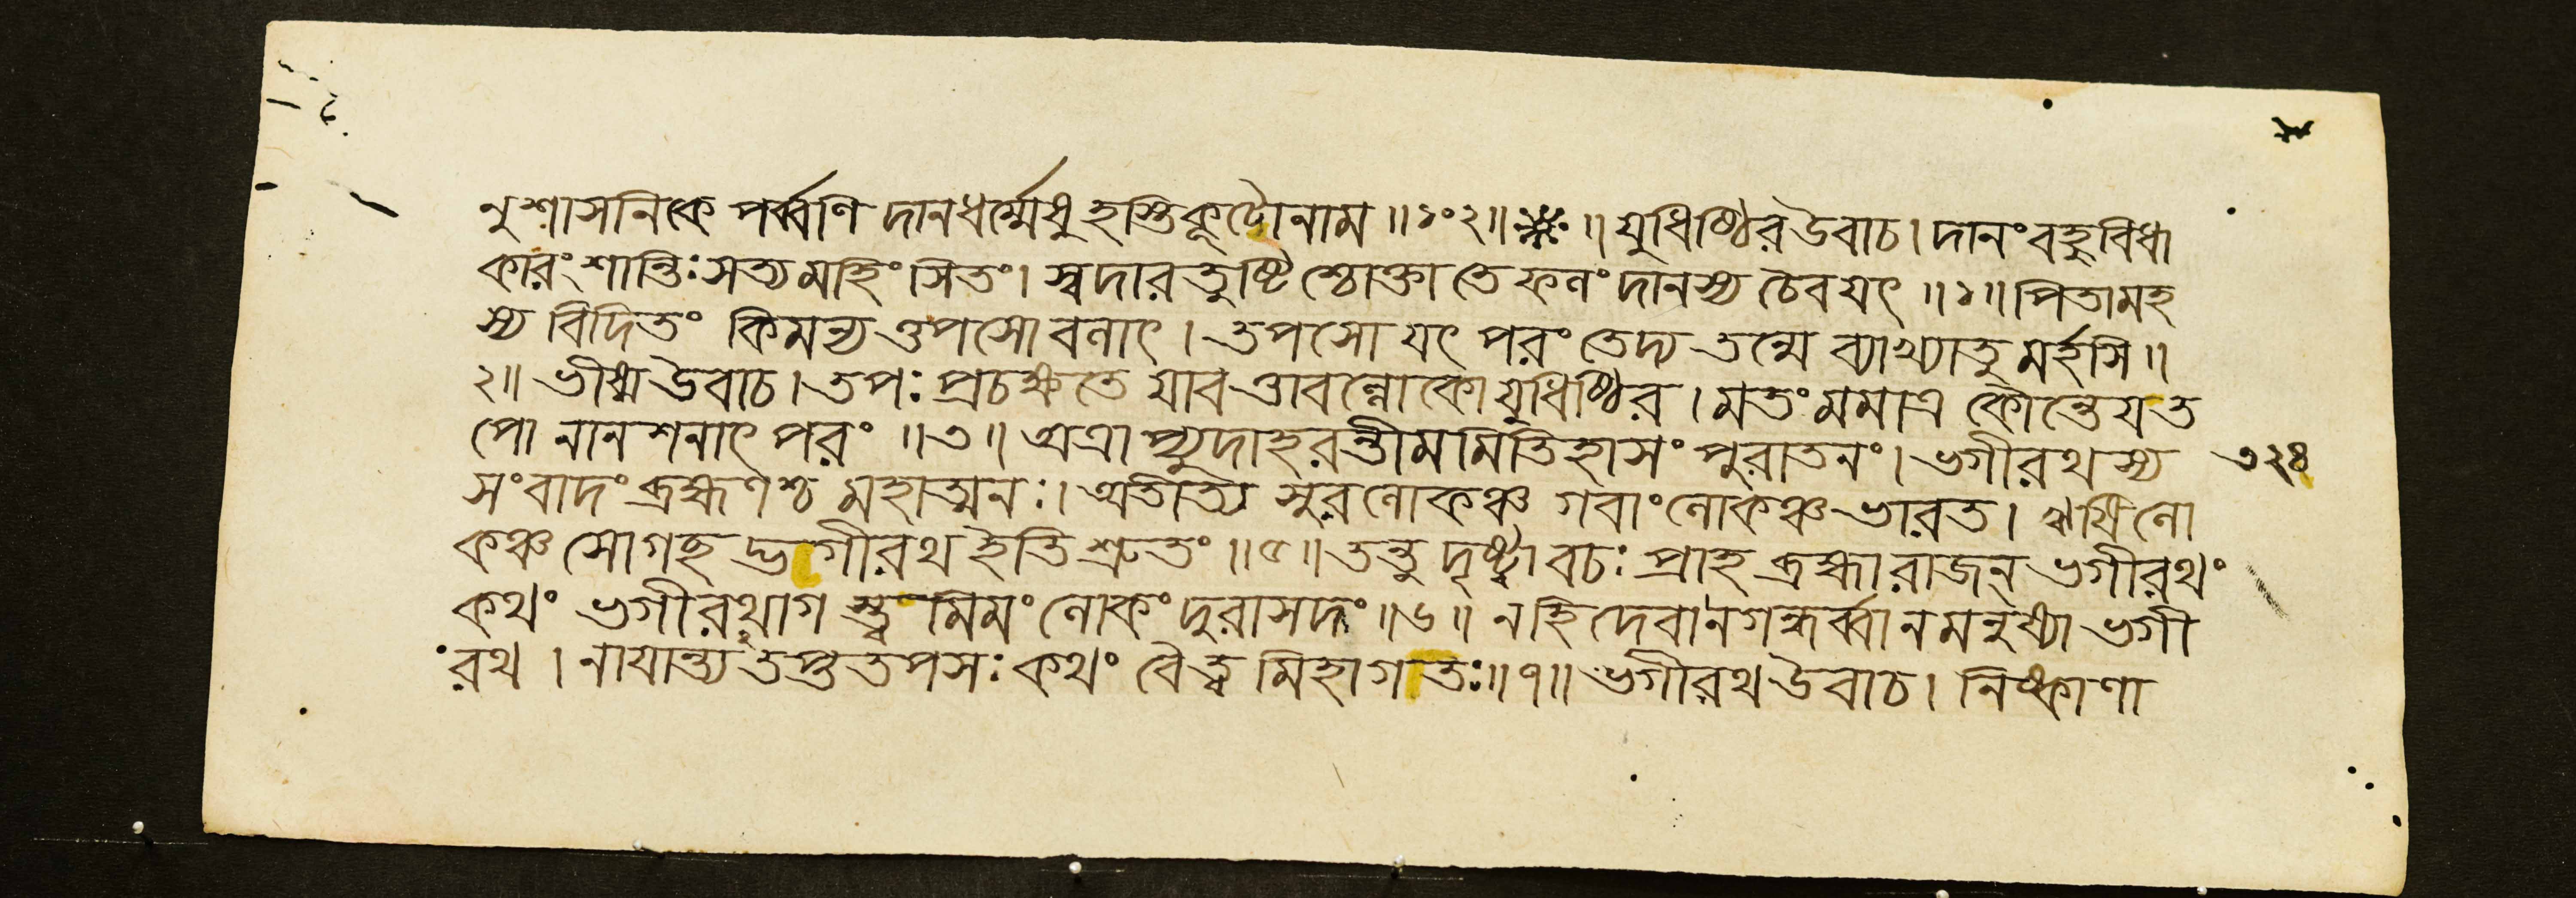 নুশাসনিকে পর্ব্বণি দানধর্ম্মেষু হস্তিকূটোনাম ॥১০২॥ ॥ যুধিষ্ঠির উবাচ। দানং বহুবিধা
কারং শান্তিঃ সত্যমহিংসিতং। স্বদারতুষ্টিশ্চোক্তা তে ফলং দানস্য চৈব যৎ ॥১॥ পিতামহ
স্য বিদিতং কিমন্যত্তপসো বলাৎ। তপসো যৎ পরং তেদ্য তন্মে ব্যাখ্যাতুমর্হসি ॥
২॥ ভীষ্ম উবাচ। তপঃ প্রচক্ষতে যাবত্তাবল্লোকো যুধিষ্ঠির। মতং মমাত্র কৌন্তেয় ত
পো নানশনাৎ পরং ॥৩॥ অত্রাপ্যুদাহরন্তীমমিতিহাসং পুরাতনং। ভগীরথস্য ৩২৪
সংবাদং ব্রহ্মণশ্চ মহাত্মনঃ। অতীত্য সুরলোকঞ্চ গবাং লোকঞ্চ ভারত। ঋষিলো
কঞ্চ সোগচ্ছদ্ভগীরথ ইতি শ্রুতং ॥৫॥ তন্তু দৃষ্ট্বা বচঃ প্রাহ ব্রহ্মা রাজন্ ভগীরথং
কথং ভগীরথাগাস্ত্বমিমং লোকং দুরাসদং ॥৬॥ ন হি দেবা ন গন্ধর্ব্বা ন মনুষ্যা ভগী
রথ। নায়ান্ত্যতপ্ততপসঃ কথং বৈ ত্বমিহাগতঃ ॥৭॥ ভগীরথ উবাচ। নিষ্কাণা